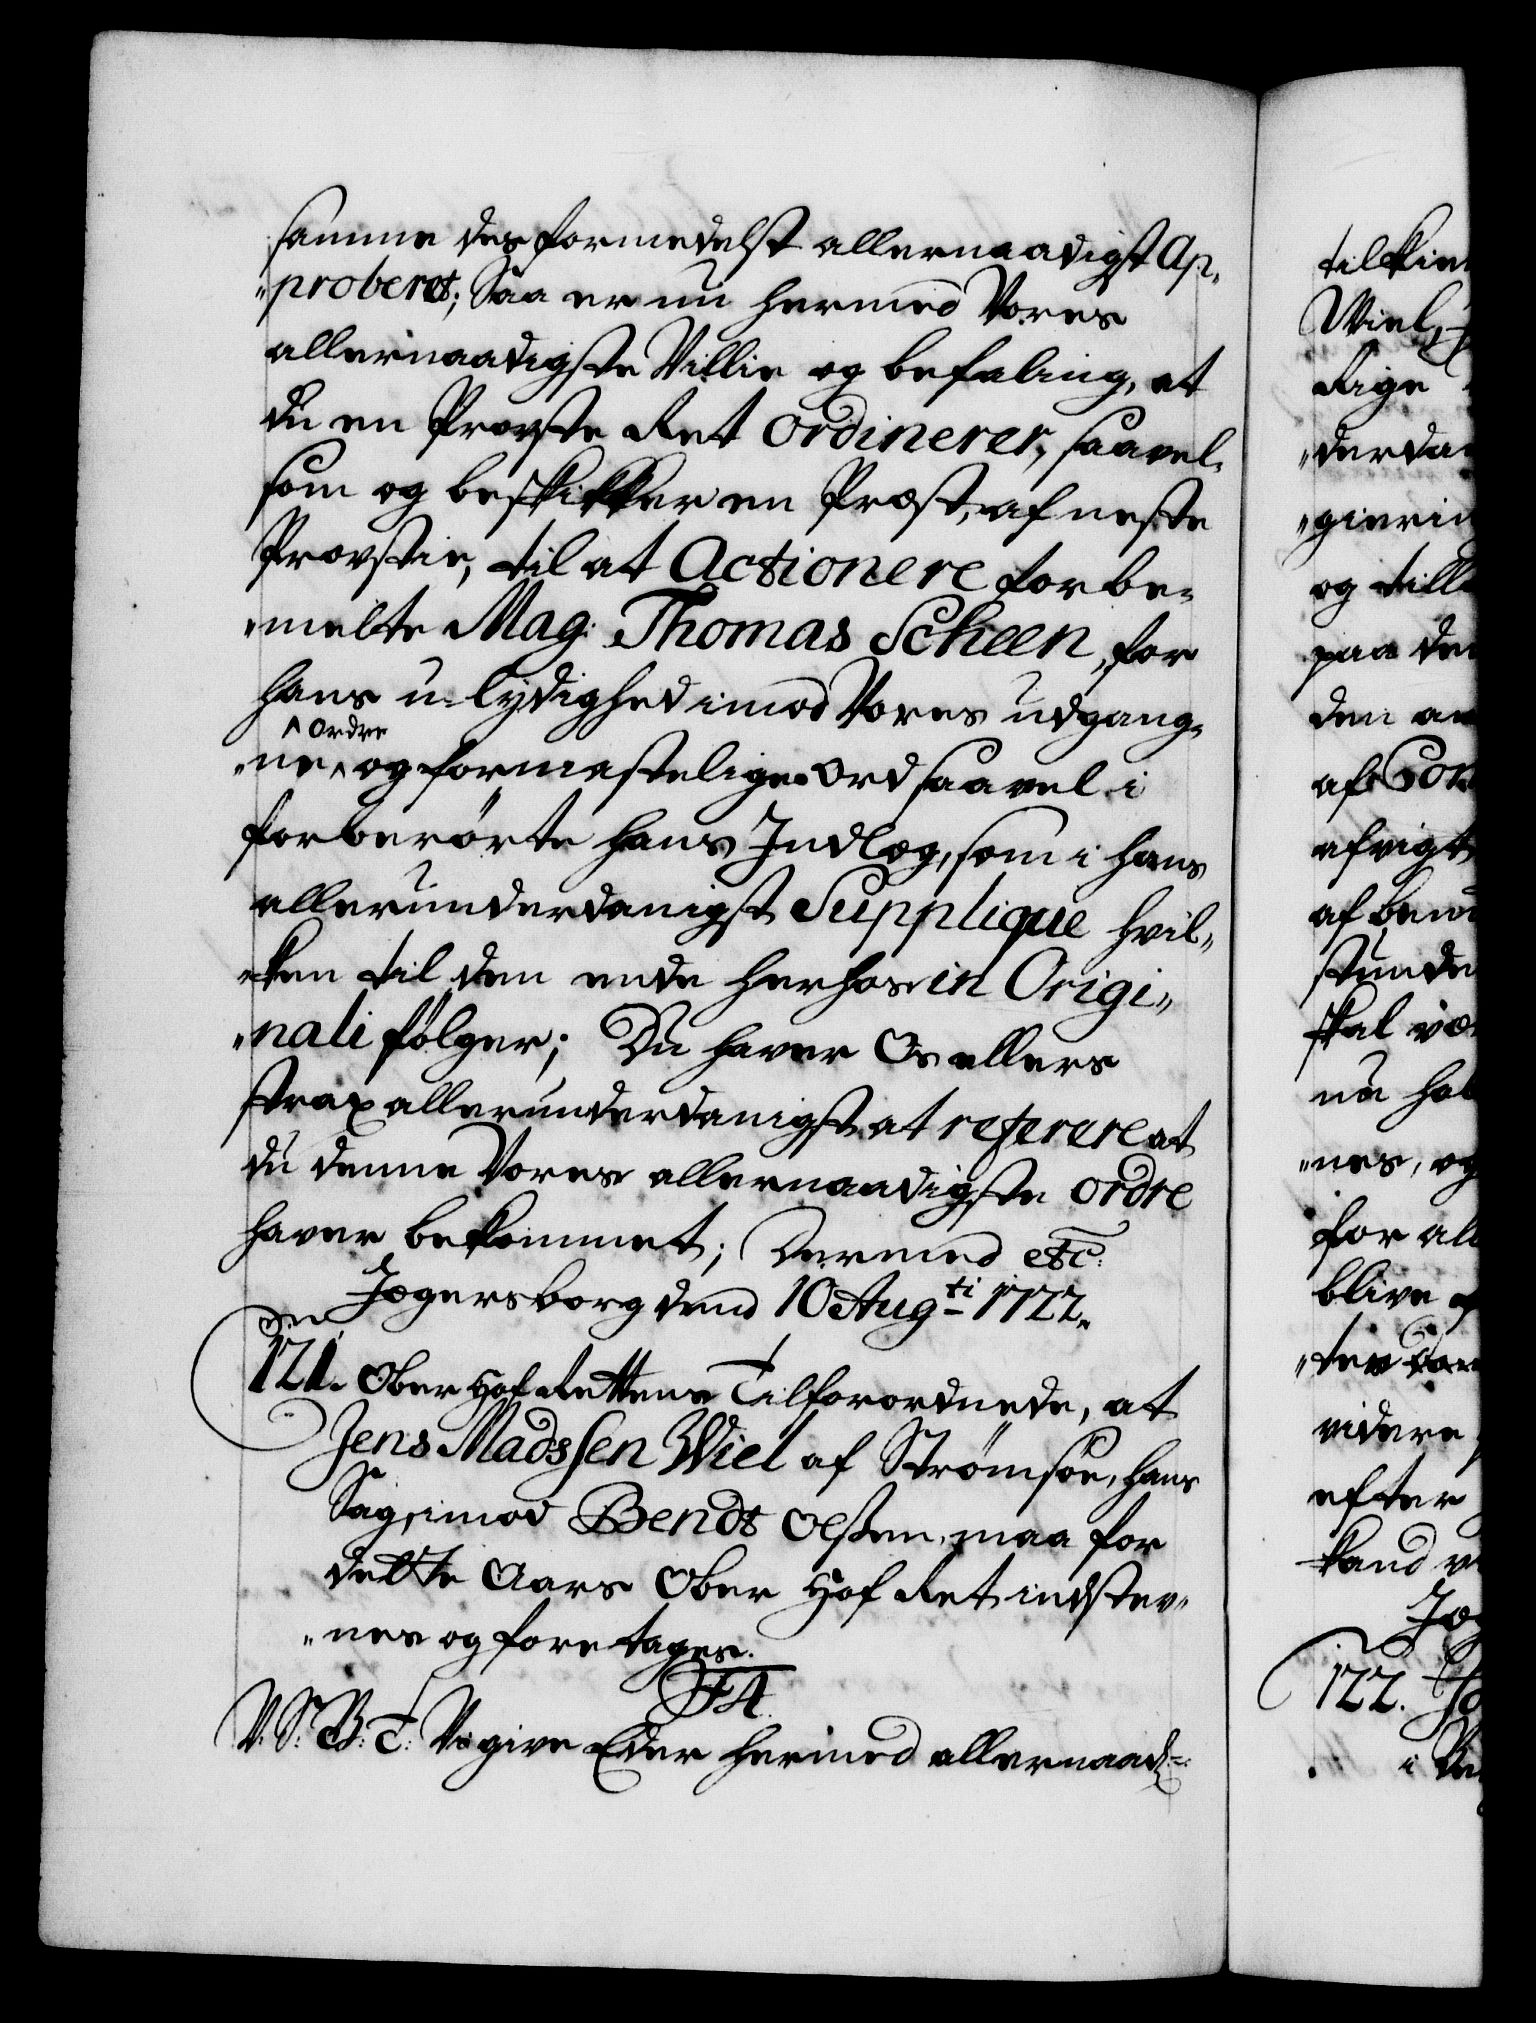 samme des formedelst allernaadigst Ap„
„proberet; Saa er nu hermed Vores
allernaadigste Villie og befaling, at
du en Provste Ret ordinerer, saavel„
som og beskikker en Præst, af neste
Provstie, til at Actionere forbe„
„melte Mag: Thomas Scheen, for
hans u-lydighed imod Vores udgang„
^ ordre
„ne ^ og formastelige ord saavel i
forberørte hans Indlæg, som i hans
allerunderdanigst Supplique hvil„
„ken til den ende herhos in Origi„
„nali følger; Du haver Os ellers
strax allerunderdanigst at referere at
du denne Vores allernaadigste ordre
haver bekommet; Dermed etc:
Jægersborg dend 10 Aug:ti 1722.
121. Ober Hof Rettens Tilforordnede, at
Jens Madssen Wiel af Strømsøe, hans
Sag, imod Bendt Olßen, maa for
dette Aars Ober Hof Ret indstev„
„nes og foretages.
F4.
V. S: B: T: Vi give Eder hermed allernaad:
tilkien
Wiel,
Rige
„derda
„gierin
og till
paa de
den an
af Con
afvigt
af be
stunde
skal væ
nu hol
„nes, og
for all
blive
„ter
videre
efter
kand v
Jæ
122. Jo
i